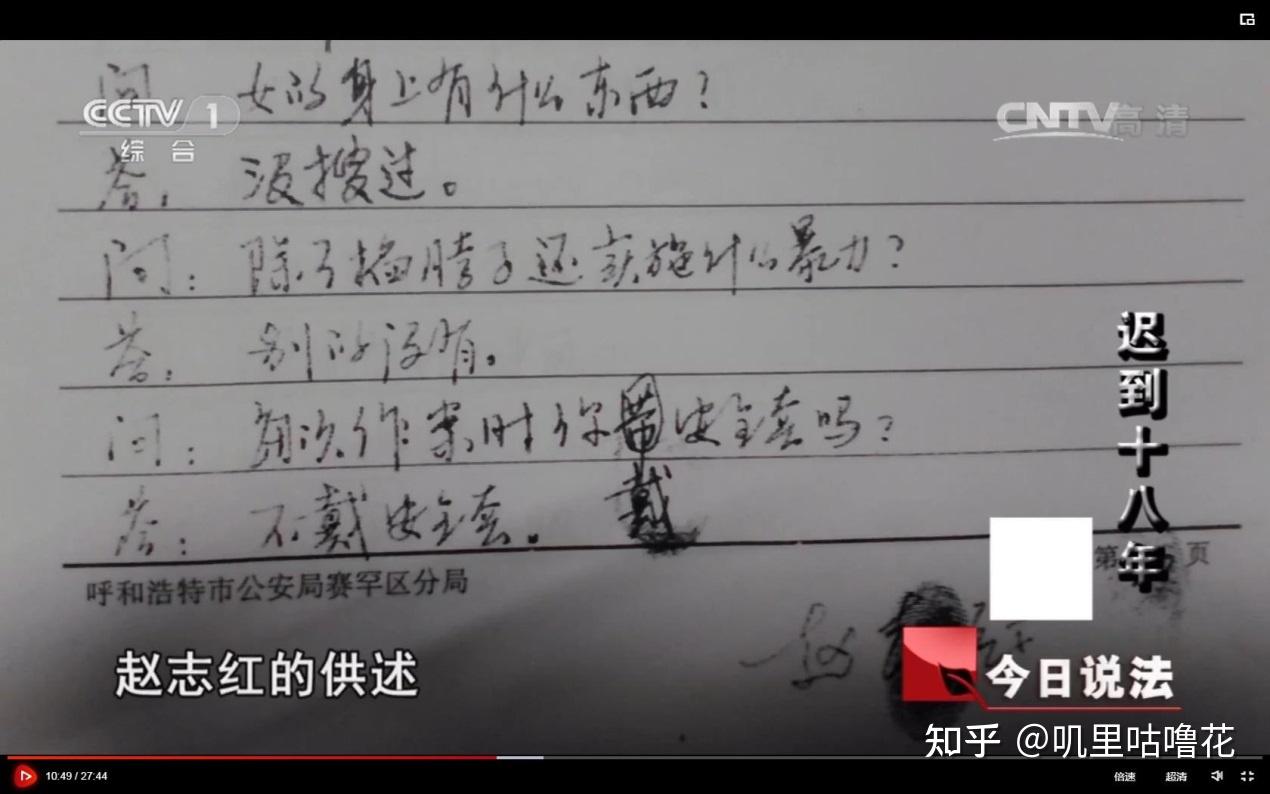 问：女的身上有什么东西？
CCTV 1
综合
CNTV高清
答：没搜过。
问：除了掐脖子还实施什么暴力？
答：别的没有。
问：每次作案时你带安全套吗？
戴
答：不戴安全套。
呼和浩特市公安局赛罕区分局
第 页
迟到十八年
赵
赵志红的供述
今日说法
知乎 @叽里咕噜花
10:49 / 27:44
倍速
超清